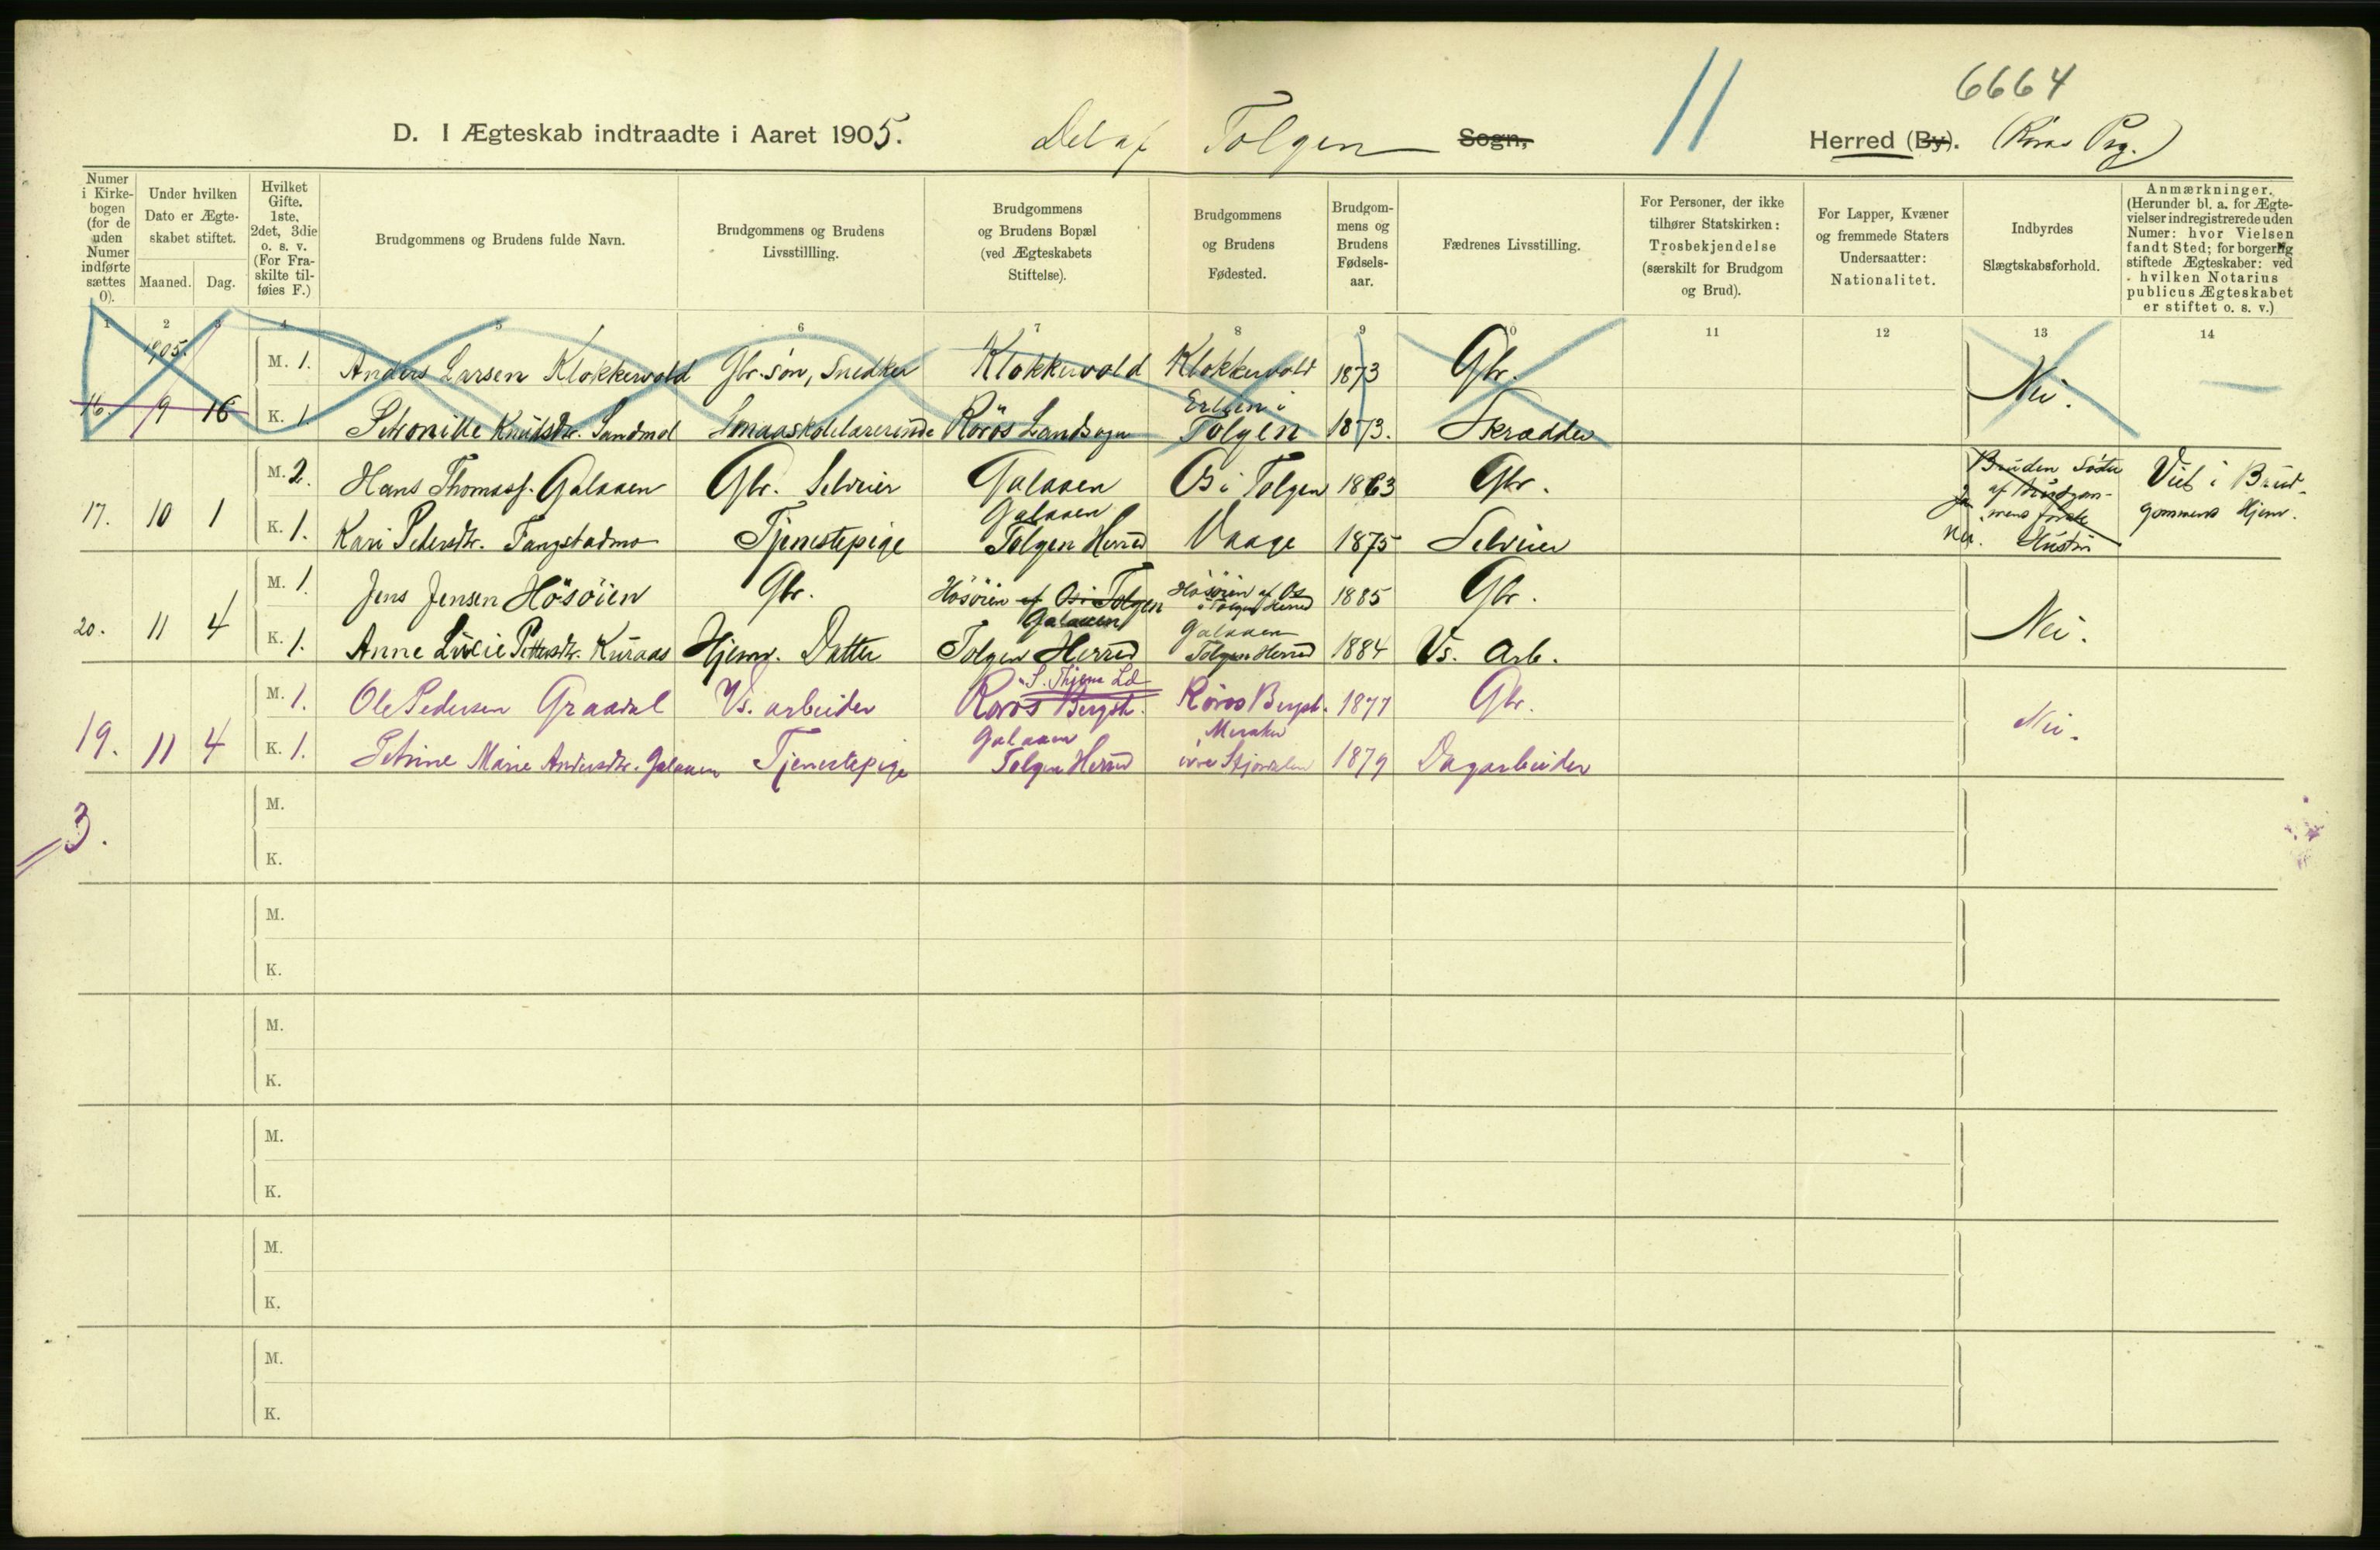 6664
11
D. I Ægteskab indtraadte i Aaret 1905. Del af Tolgen Sogn, Herred (By). (Røros Prg.)
Numer i Kirkebogen (for de uden Numer indførte sættes 0).
Under hvilken Dato er Ægteskabet stiftet.
Maaned. Dag.
Hvilket Gifte. 1ste, 2det, 3die o. s. v. (For Fraskilte tilføies F.)
Brudgommens og Brudens fulde Navn.
Brudgommens og Brudens Livsstillling.
Brudgommens og Brudens Bopæl (ved Ægteskabets Stiftelse).
Brudgommens og Brudens Fødested.
Brudgommens og Brudens Fødselsaar.
Fædrenes Livsstilling.
For Personer, der ikke tilhører Statskirken: Trosbekjendelse (særskilt for Brudgom og Brud).
For Lapper, Kvæner og fremmede Staters Undersaatter: Nationalitet.
Indbyrdes Slægtskabsforhold.
Anmærkninger. (Herunder bl. a. for Ægtevielser indregistrerede uden Numer: hvor Vielsen fandt Sted; for borgerlig stiftede Ægteskaber: ved hvilken Notarius publicus Ægteskabet er stiftet o. s. v.)
1 2 3 4 5 6 7 8 9 10 11 12 13 14
1905.
M. 1. Anders Larsen Klokkervold Gbr. søn, Snedker Klokkervold Klokkervold 1873 Gbr.
16. 9 16 K. 1. Petronille Knudsdtr. Sandmol Smaaskolelærerinde Röros Landsogn Erlien i Tolgen 1873. Skrædder Nei.
M. 2. Hans Thomass. Galaaen Gbr. Selveier Galaaen Os i Tolgen 1863 Gbr.
17. 10 1 K. 1. Kari Pedersdtr. Tangstadmo Tjenestepige Galaaen Tolgen Herred Vaage 1875 Selveier
Bruden Søster af Brudgommens første Hustru
Ja
Nei.
Viet i Brudgommens Hjem.
M. 1. Jens Jensen Hösöien Gbr. Hösöien af Os i Tolgen Hösöien af Os i Tolgen Herred 1885 Gbr.
20. 11 4 K. 1. Anne Lucie Pettersdtr. Kuraas Hjemv. Datter Galaaen Tolgen Herred Galaaen Tolgen Herred 1884 Vs. Arb. Nei.
M. 1. Ole Pedersen Graadal Vs. arbeider Røros Bergst. Røros Bergst. 1877 Gbr.
19. 11 4 K. 1. Petrine Marie Andersdtr. Galaaen Tjenestepige Galaaen Tolgen Herred Meraker Stjørdalen 1879 Dagarbeider Nei.
3.
M.
K.
M.
K.
M.
K.
M.
K.
M.
K.
M.
K.